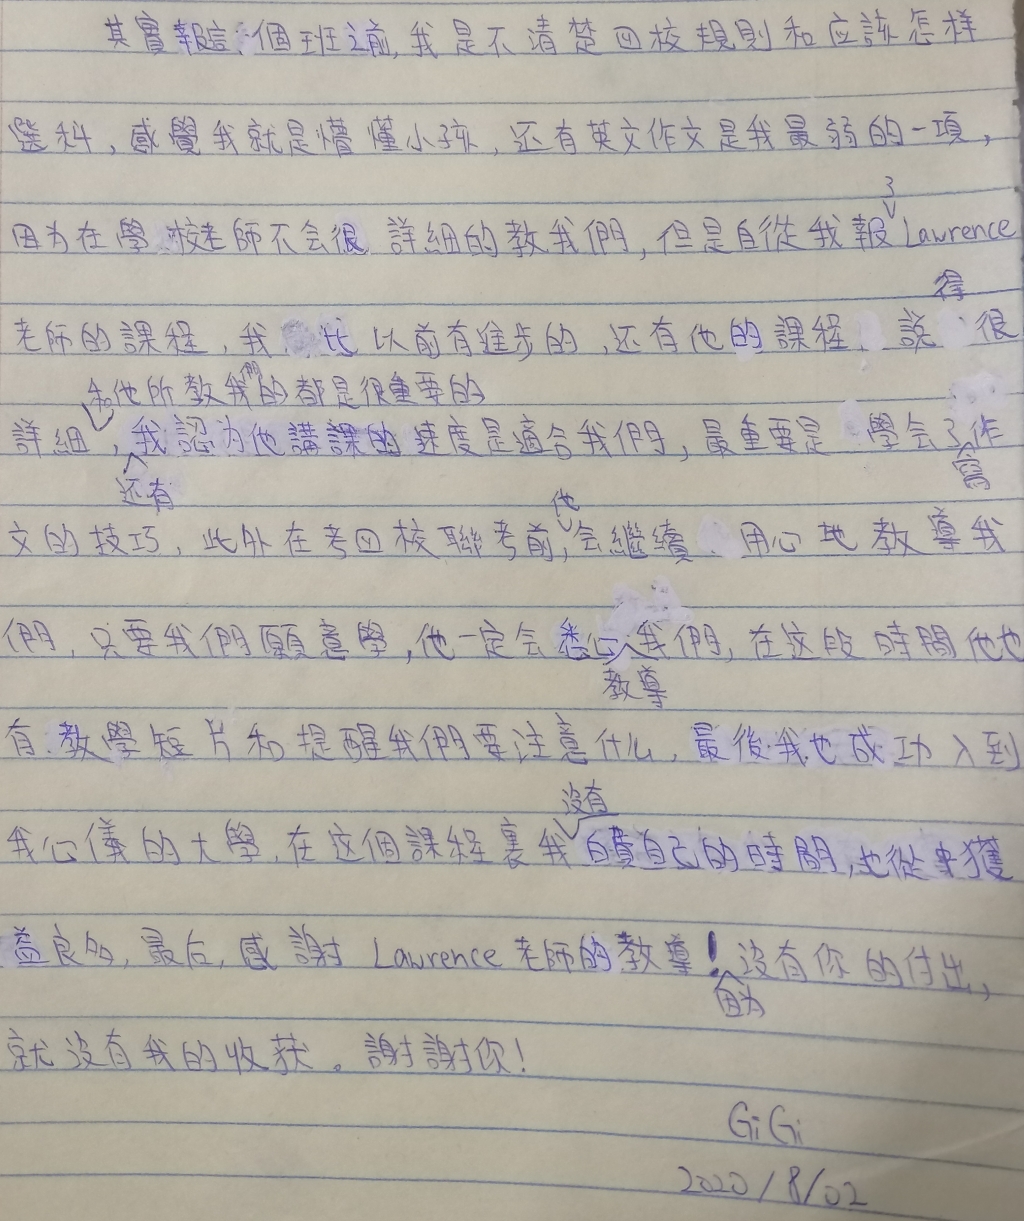 其實報這個班之前,我是不清楚四校規則和应該怎样
選科,感覺我就是懵懂小孩,还有英文作文是我最弱的一項,
因为在學校老師不会很詳細的教我們,但是自從我報了Lawrence
老師的課程,我比以前有進步的,还有他的課程說得很
詳細和他所教我們的都是很重要的,还有我認为他講課的速度是適合我們,最重要是學会了寫作
文的技巧,此外在考四校聯考前,他会繼續用心地教導我
們,只要我們願意學,他一定会悉心教導我們,在这段時間他也
有教學短片和提醒我們要注意什么,最後我也成功入到
我心儀的大學,在这個課程裏我沒有白費自己的時間,也從中獲
益良多,最后,感謝Lawrence老師的教導!因为沒有你的付出,
就沒有我的收获。謝謝你!
GiGi
2020/8/02